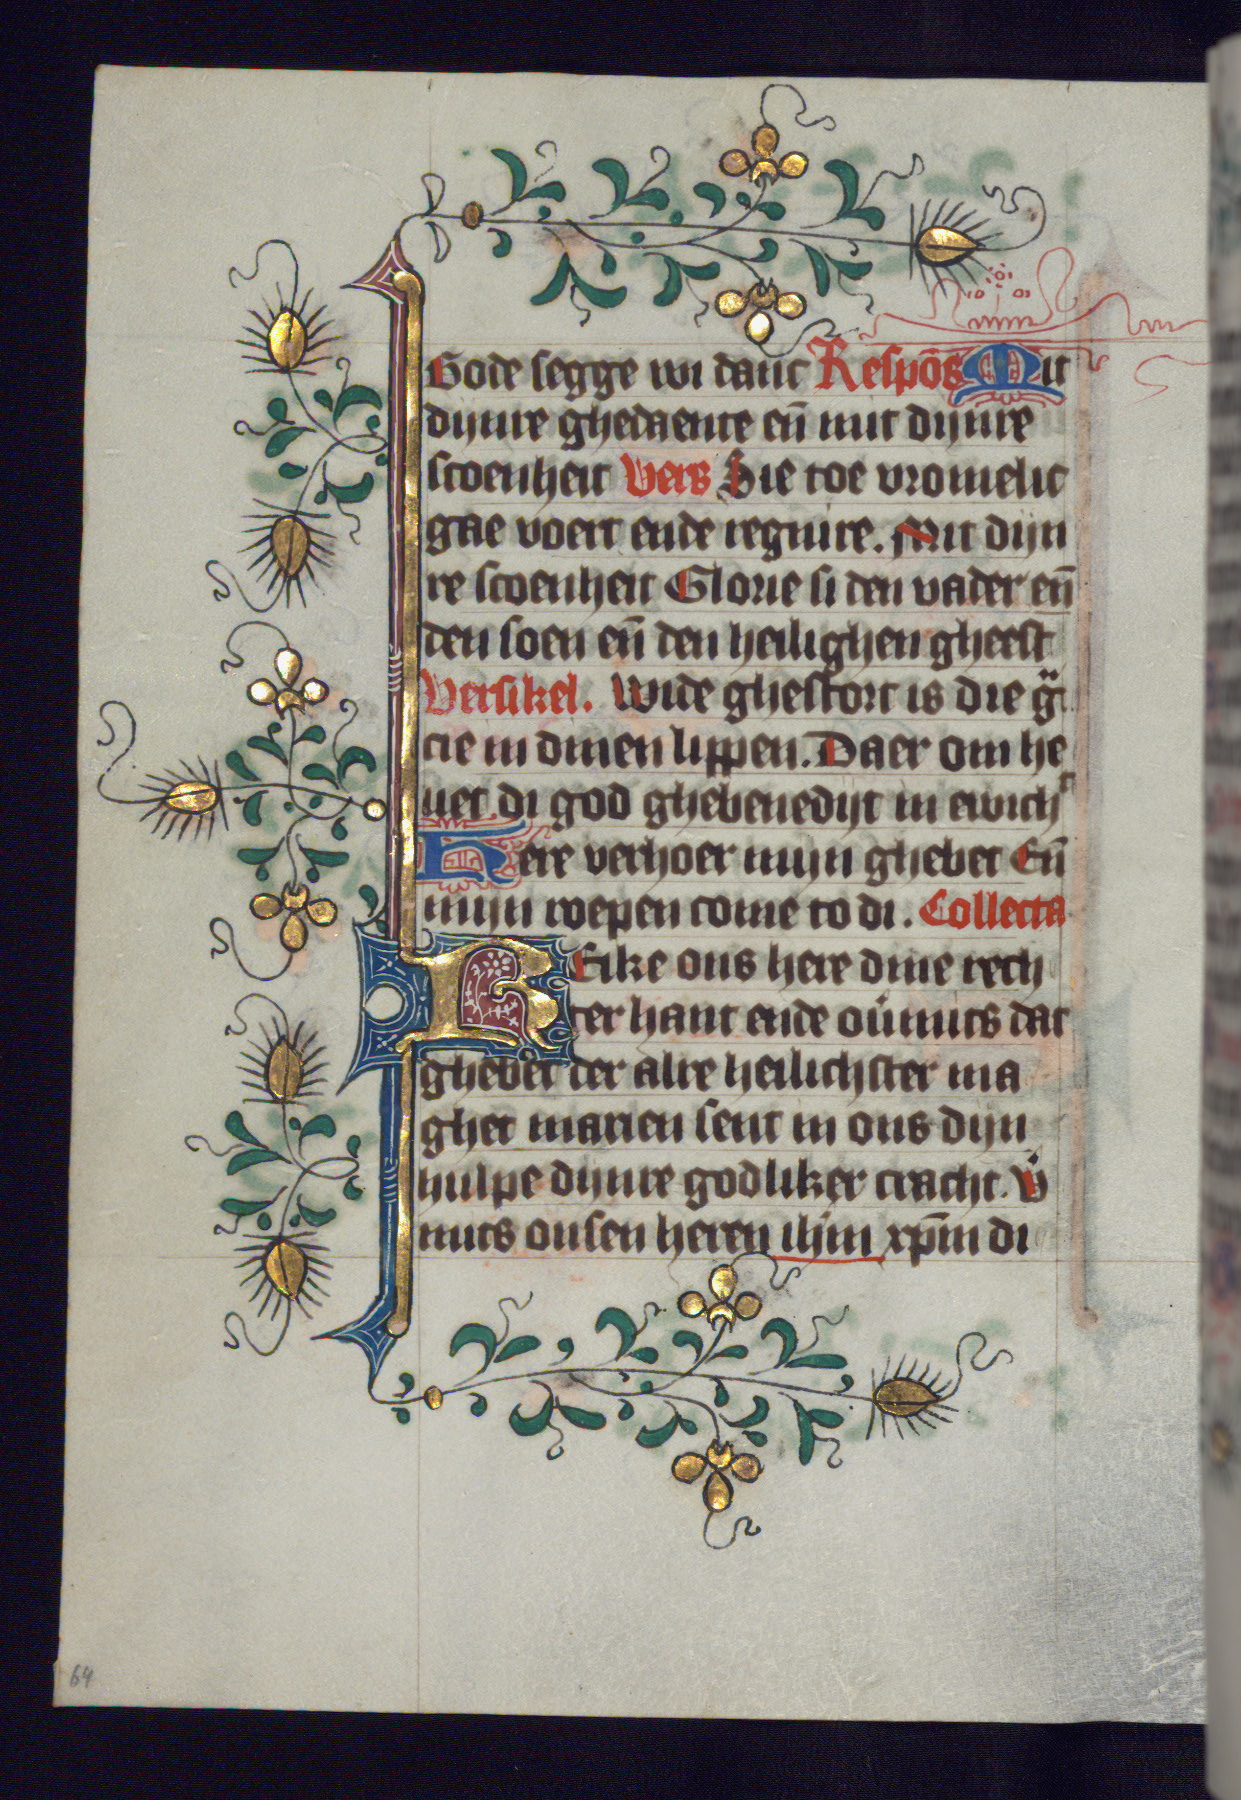 Gode segge wi danc Respōs Mit
dijnre ghedaente eñ mit dijnre
scoenheit Vers Sie toe vromelic
gae voert ende regnire. Mit dijn
re scoenheit Glorie si den vader eñ
den soen eñ den heilighen gheest
Versikel. Wide ghestort is die g̃
cie in dinen lippen. Daer om he
uet di god ghebenedijt in ewich
Here verhoer mijn ghebet Eñ
mijn roepen come to di. Collecta
Reike ons here dine rech
ter hant ende ouimits dat
ghebet der alre heilichster ma
ghet marien sent in ons dijn
hulpe dijnre godliker cracht. V
mits onsen heren ihm̄ xp̄m di
64